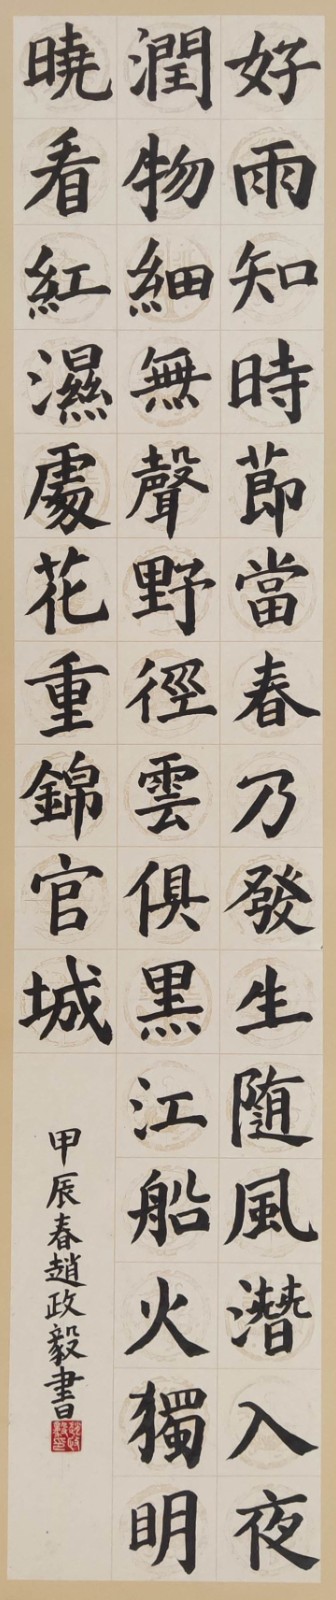 好雨知時節當春乃發生随風潛入夜
潤物細無聲野徑雲俱黒江船火獨明
曉看紅濕處花重錦官城
甲辰春趙政毅書